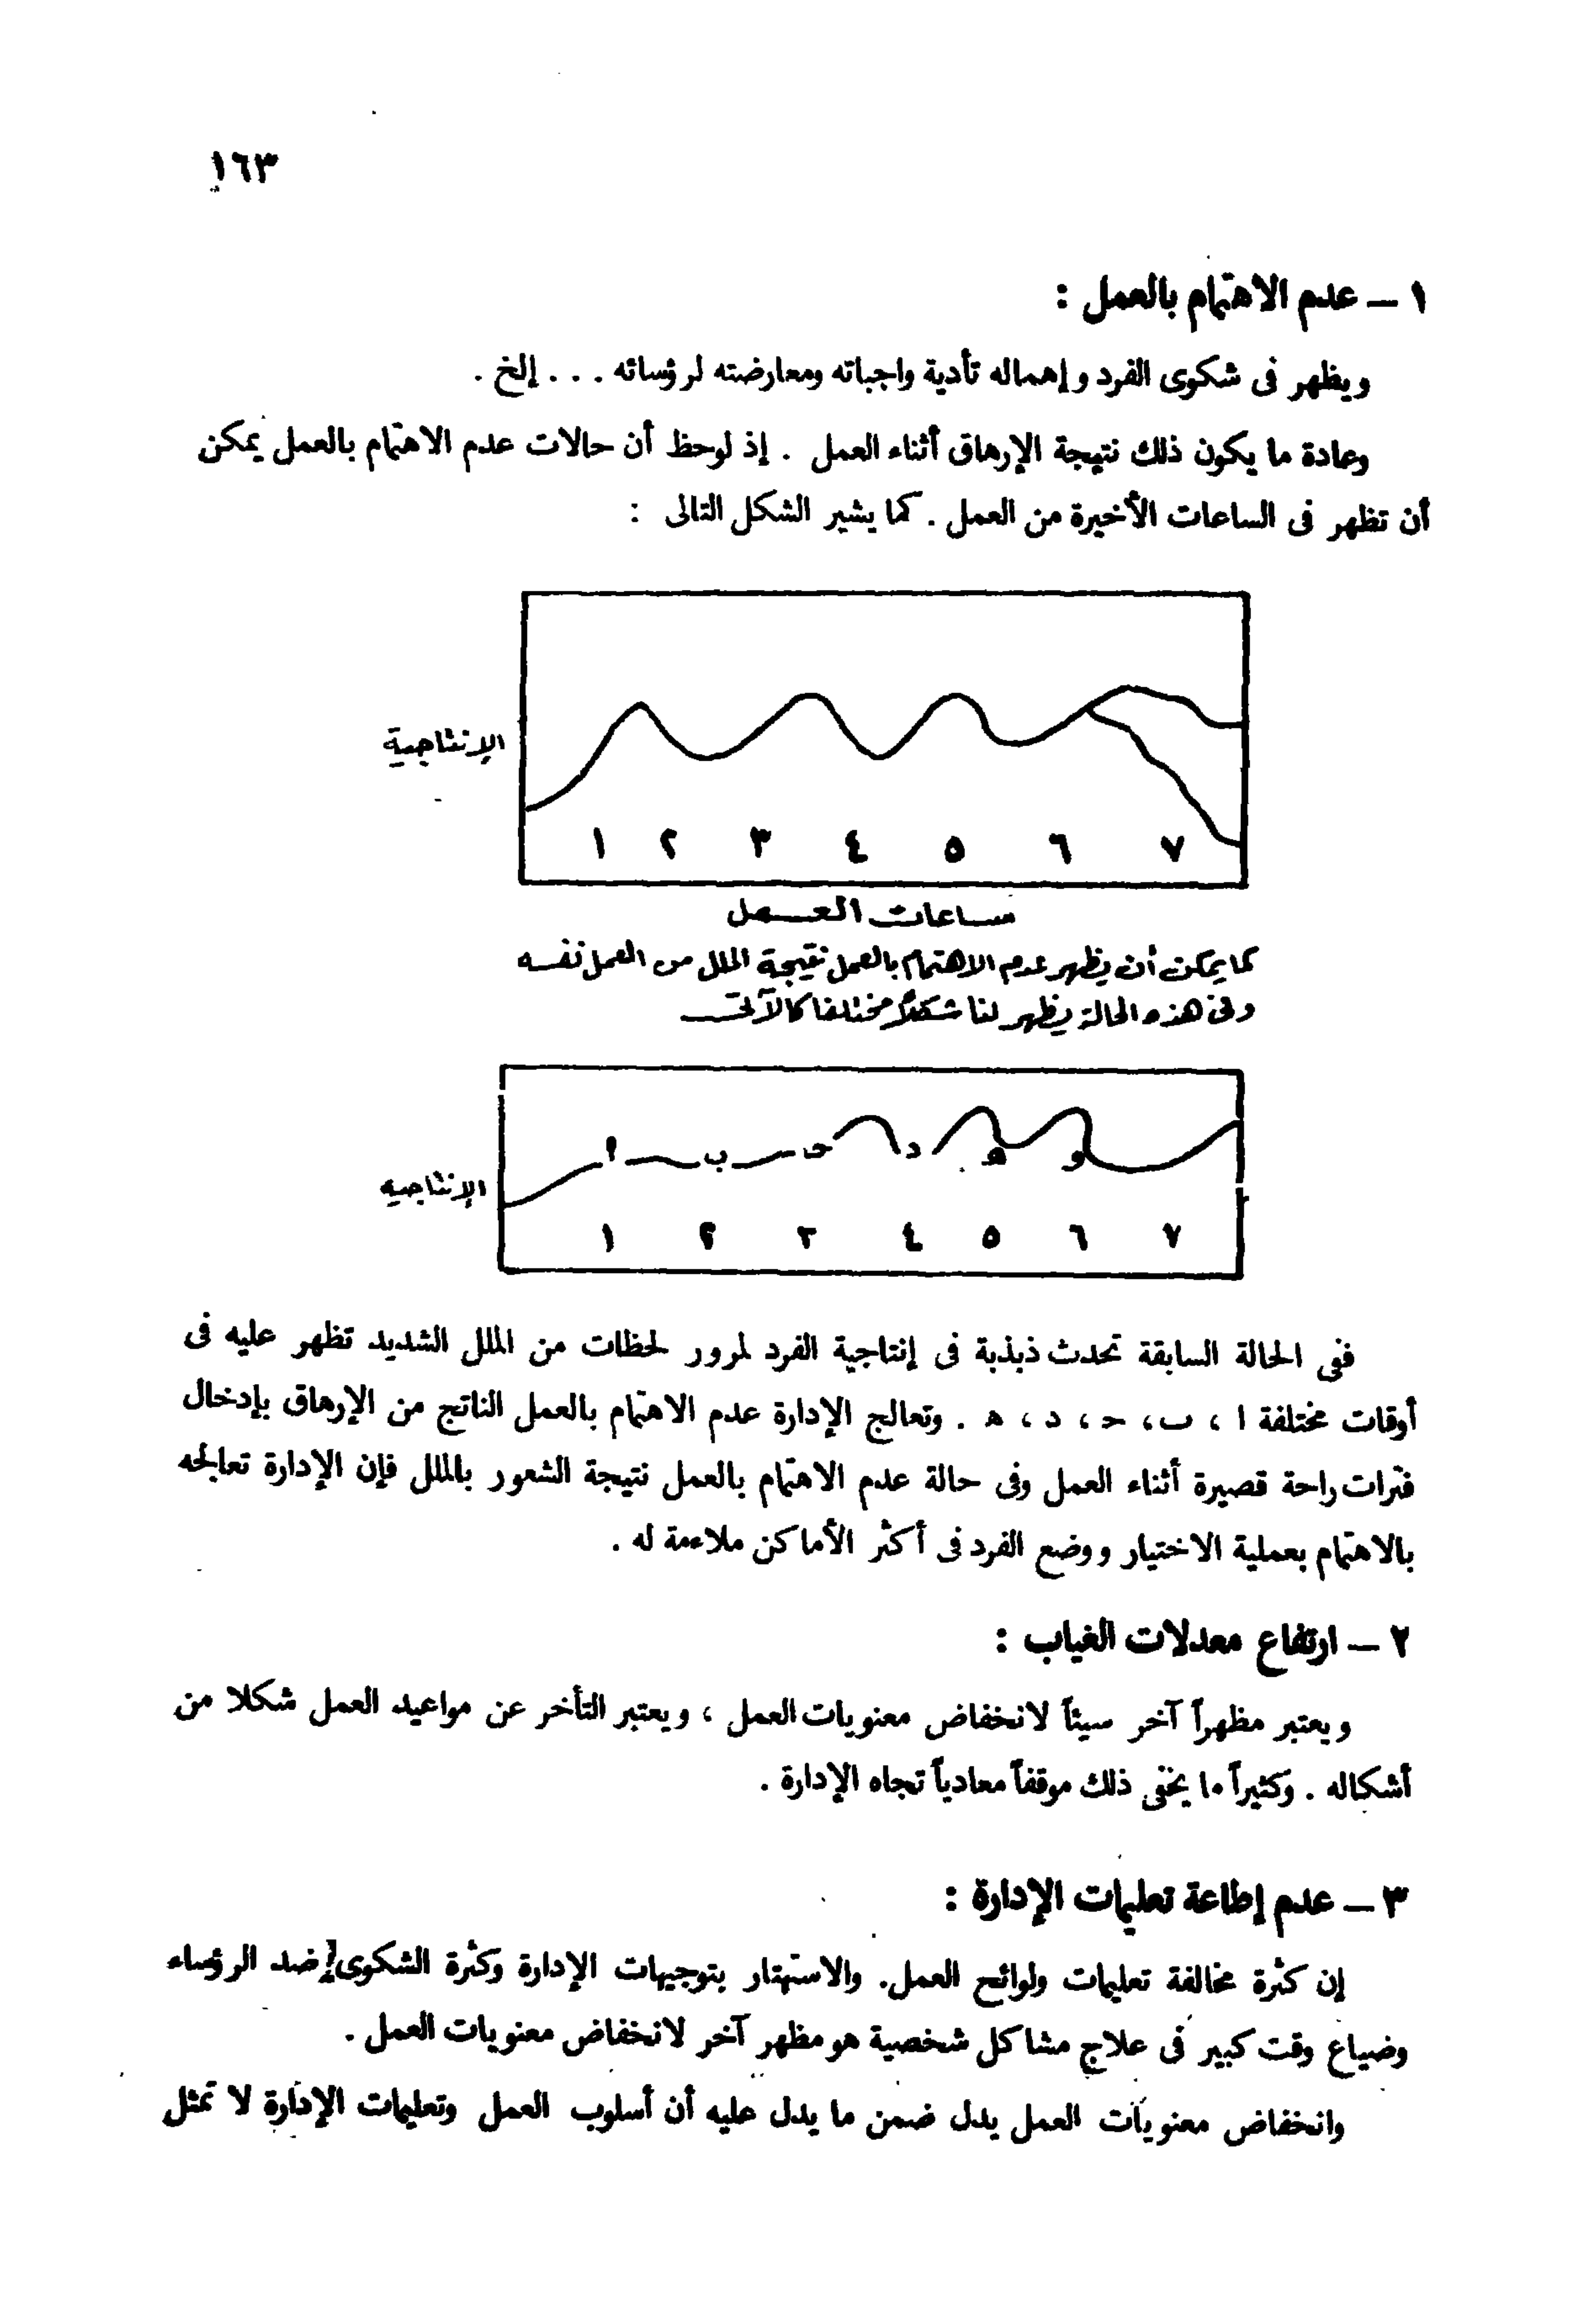 ١٦٣
١ — عدم الاهتمام بالعمل :
ويظهر فى شكوى الفرد وإهماله تأدية واجباته ومعارضته لرؤسائه . . . إلخ .
وعادة ما يكون ذلك نتيجة الإرهاق أثناء العمل . إذ لوحظ أن حالات عدم الاهتمام بالعمل يمكن
أن تظهر فى الساعات الأخيرة من العمل . كما يشير الشكل التالى :
الإنتاجية
١ ٢ ٣ ٤ ٥ ٦ ٧
ساعات العمل
كما يمكن أن يظهر عدم الاهتمام بالعمل نتيجة الملل من العمل نفسه
وفى هذه الحالة يظهر لنا شكلاً مختلفا كالآتى
ا ب حـ د هـ و
الإنتاجيه
١ ٢ ٣ ٤ ٥ ٦ ٧
ففى الحالة السابقة تحدث ذبذبة فى إنتاجية الفرد لمرور لحظات من الملل الشديد تظهر عليه فى
أوقات مختلفة ا ، ب ، حـ ، د ، هـ . وتعالج الإدارة عدم الاهتمام بالعمل الناتج من الإرهاق بإدخال
فترات راحة قصيرة أثناء العمل وفى حالة عدم الاهتمام بالعمل نتيجة الشعور بالملل فإن الإدارة تعالجه
بالاهتمام بعملية الاختيار ووضع الفرد فى أكثر الأماكن ملاءمة له .
٢ — ارتفاع معدلات الغياب :
ويعتبر مظهراً آخر سيئاً لانخفاض معنويات العمل ، ويعتبر التأخر عن مواعيد العمل شكلا من
أشكاله . وكثيراً ما يخفى ذلك موقفاً معادياً تجاه الإدارة .
٣ — عدم إطاعة تعليمات الإدارة :
إن كثرة مخالفة تعليمات ولوائح العمل. والاستهتار بتوجيهات الإدارة وكثرة الشكوى ضد الرؤساء
وضياع وقت كبير فى علاج مشاكل شخصية هو مظهر آخر لانخفاض معنويات العمل .
وانخفاض معنويات العمل يدل ضمن ما يدل عليه أن أسلوب العمل وتعليمات الإدارة لا تمثل